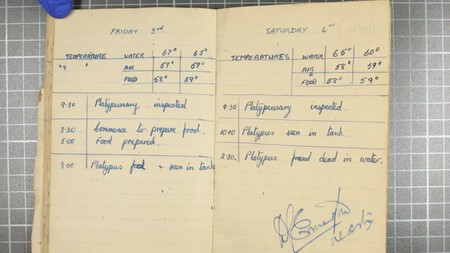 FRIDAY 3rd
TEMPERATURE WATER 67° 65°
" " AIR 57° 59°
FOOD 58° 59°
9-30 Platypusary inspected
3-30 Commence to prepare food.
5-00 Food prepared.
8-00 Platypus food & seen in tank
SATURDAY 4
TEMPERATURES WATER 65° 60°
AIR 58° 59°
FOOD 58° 59°
9-30 Platypusary inspected.
Platypus seen in tank.
2-30. Platypus found dead in water.